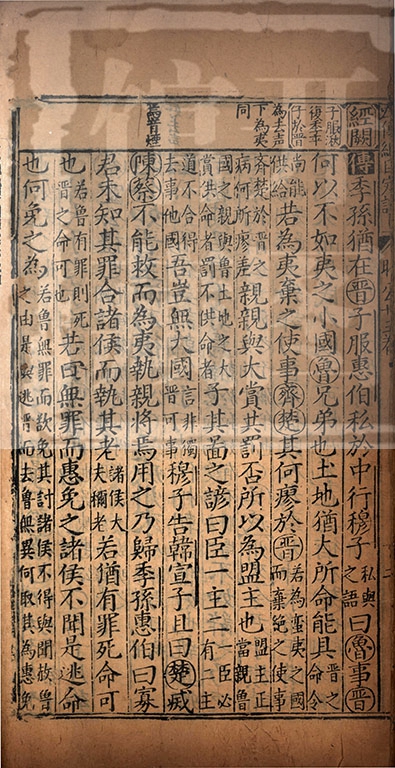 經闕
為去声
下為夷
同
焉音煙
傳季孫猶在晉子服惠伯私於中行穆子私與之語曰魯事晉
何以不如夷之小國魯兄弟也土地猶大所命能具晉之命令
尚能供給若為夷棄之使事齊楚其何瘳於晉若為蠻夷之國而棄絕之使事
齊楚於晉病何所瘳差親親與大賞共罰否所以為盟主也盟主正當親魯
國之親與魯土地之大賞共命者罰不供命者子其啚之諺曰臣一主二一臣必有二主
道不合得去事他國吾豈無大國言非獨晉可事穆子告韓宣子且曰楚滅
陳蔡不能救而為夷執親將焉用之乃歸季孫惠伯曰寡
君未知其罪合諸侯而執其老諸侯大夫稱老若猶有罪死命可
也若魯有罪則死晉之命可也若曰無罪而惠免之諸侯不聞是逃命
也何免之為若魯無罪而欲免其討諸侯不得與聞故魯之由是與逃晉而去魯無異何取其為惠免